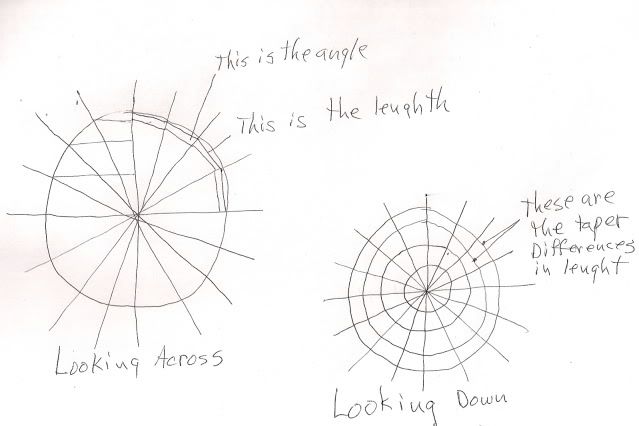 This is the angle
This is the lenghth
these are
the taper
Differences
in lenght
Looking Across
Looking Down